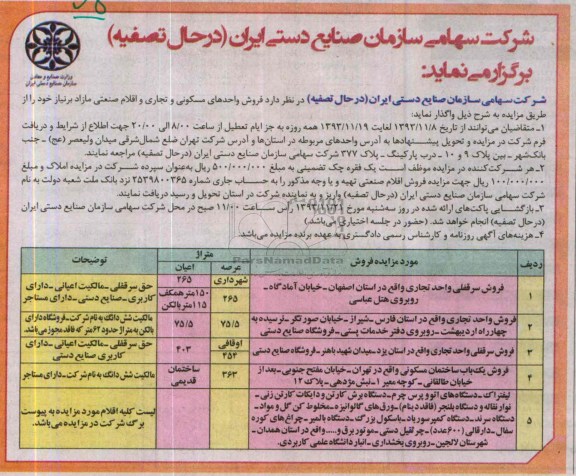 شرکت سهامی سازمان صنایع دستی ایران (درحال تصفیه)
برگزار می نماید:
وزارت صنایع و معادن
سازمان صنایع دستی ایران
شرکت سهامی سازمان صنایع دستی ایران (درحال تصفیه) در نظر دارد فروش واحدهای مسکونی و تجاری و اقلام صنعتی مازاد برنیاز خود را از
طریق مزایده به شرح ذیل واگذار نماید:
۱ـ متقاضیان می‌توانند از تاریخ ۱۳۹۳/۱۱/۸ لغایت ۱۳۹۳/۱۱/۱۹ همه روزه به جز ایام تعطیل از ساعت ۸/۰۰ الی ۲۰/۰۰ جهت اطلاع از شرایط و دریافت
فرم شرکت در مزایده و تحویل پیشنهادها به آدرس واحدهای مربوطه در استان‌ها و آدرس شرکت تهران ضلع شمال‌شرقی میدان ولیعصر (عج) ـ جنب
بانک‌شهر ـ بین پلاک ۹ و ۱۰ ـ درب پارکینگ ـ پلاک ۳۷۷ شرکت سهامی سازمان صنایع دستی ایران (درحال تصفیه) مراجعه نمایند.
۲ـ هر شرکت‌کننده در مزایده موظف است یک فقره چک تضمینی به مبلغ ۵۰۰/۰۰۰/۰۰۰ ریال به‌عنوان سپرده شرکت در مزایده املاک و مبلغ
۱۰۰/۰۰۰/۰۰۰ ریال جهت مزایده فروش اقلام صنعتی تهیه و یا وجه مذکور را به حساب جاری شماره ۲۵۳۹۸۰۰۲۶۵ نزد بانک ملت شعبه دولت به نام
شرکت سهامی سازمان صنایع دستی ایران (درحال تصفیه) واریز و به نماینده شرکت در استان تحویل و رسید دریافت نمایند.
۳ـ بازگشایی پاکت‌های ارائه شده در روز سه‌شنبه مورخ رأس ساعت ۱۱/۰۰ صبح در محل شرکت سهامی سازمان صنایع دستی ایران
(درحال تصفیه) انجام خواهد شد. (حضور در جلسه اختیاری می‌باشد.)
۴ـ هزینه‌های آگهی روزنامه و کارشناس رسمی دادگستری به عهده برنده مزایده می‌باشد.
ParsNamadData
ردیف مورد مزایده فروش متراژ توضیحات
عرصه اعیان
۱ فروش سرقفلی واحد تجاری واقع در استان اصفهان ـ خیابان آمادگاه ـ
روبروی هتل عباسی
شهرداری ۲۶۵
۲۶۵ ۱۵۰مترهمکف
۱۱۵متربالکن
حق سرقفلی ـ مالکیت اعیانی ـ دارای
کاربری ـ صنایع دستی ـ دارای مستاجر
۲ فروش واحد تجاری واقع در استان فارس ـ شیراز ـ خیابان صورتگر ـ نرسیده به
چهارراه اردیبهشت ـ روبروی دفتر خدمات پستی ـ فروشگاه صنایع دستی
۷۵/۵ ۷۵/۵
مالکیت شش دانگ به نام شرکت ـ فروشگاه دارای
بالکن به متراژ حدود ۶۲متر که فاقد مجوز می‌باشد.
۳ فروش سرقفلی واحد تجاری واقع در استان یزد ـ میدان شهید باهنر ـ فروشگاه صنایع دستی
اوقافی
۲۵۲ ۴۰۳
حق سرقفلی ـ مالکیت اعیانی ـ دارای
کاربری صنایع دستی
۴ فروش یک‌باب ساختمان مسکونی واقع در تهران ـ خیابان مفتح جنوبی ـ بعد از
خیابان طالقانی ـ کوچه معیر ۱ ـ نبش مژدهی ـ پلاک ۱۲
۳۶۳ ساختمان
قدیمی
مالکیت شش دانگ به نام شرکت ـ دارای مستاجر
۵ لیفتراک ـ دستگاه‌های اتو و پرس چرم ـ دستگاه برش کارتن و دایکات کارتن زنی ـ
نوار نقاله و دستگاه بلنجر (فاقد دینام) ـ ورق‌های گالوانیزه ـ مخلوط کن گل و مواد ـ
دستگاه سرند ـ دستگاه کمپرسور باد ـ باسکول بزرگ ـ دستگاه بالمیر ـ چراغ‌های کوره
سفال ـ دارقالی (۶۰۰عدد) ـ جرثقیل دستی ـ موتور برق و.... واقع در استان همدان ـ
شهرستان لالجین ـ روبروی بخشداری ـ انبار دانشگاه علمی کاربردی.
لیست کلیه اقلام مورد مزایده به پیوست
برگ شرکت در مزایده می‌باشد.